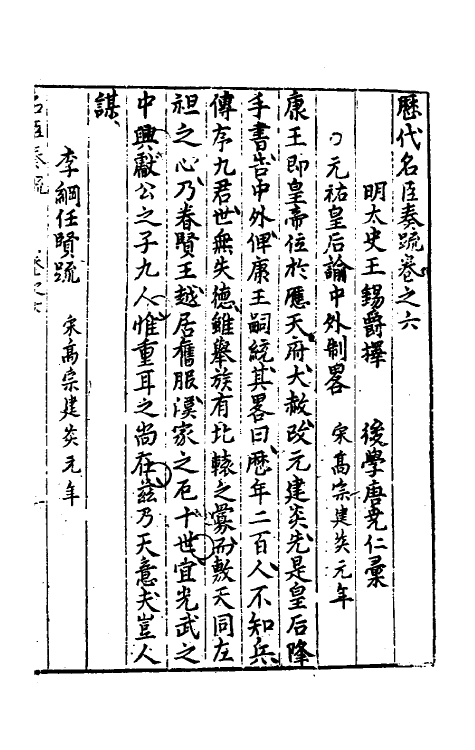 歷代名臣奏疏卷之六
明太史王錫爵擇 後學唐堯仁彙
元祐皇后諭中外制畧 宋高宗建炎元年
康王即皇帝位於應天府大赦改元建炎先是皇后降
手書告中外俾康王嗣統其畧曰歷年二百人不知兵
傳序九君世無失德雖舉族有北轅之釁而敷天同左
袒之心乃眷賢王越居舊服漢家之厄十世宜光武之
中興獻公之子九人惟重耳之尚在茲乃天意夫豈人
謀
李綱任賢疏 宋高宗建炎元年
名臣奏疏 卷之六